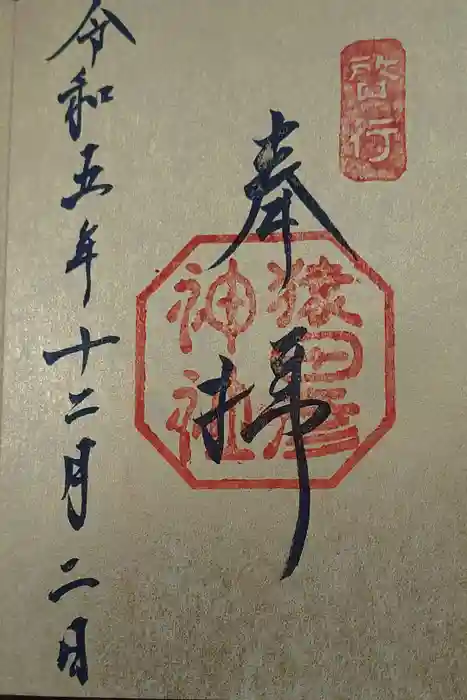 啓行
奉拝
猿田彦
神社
令和五年十二月二日